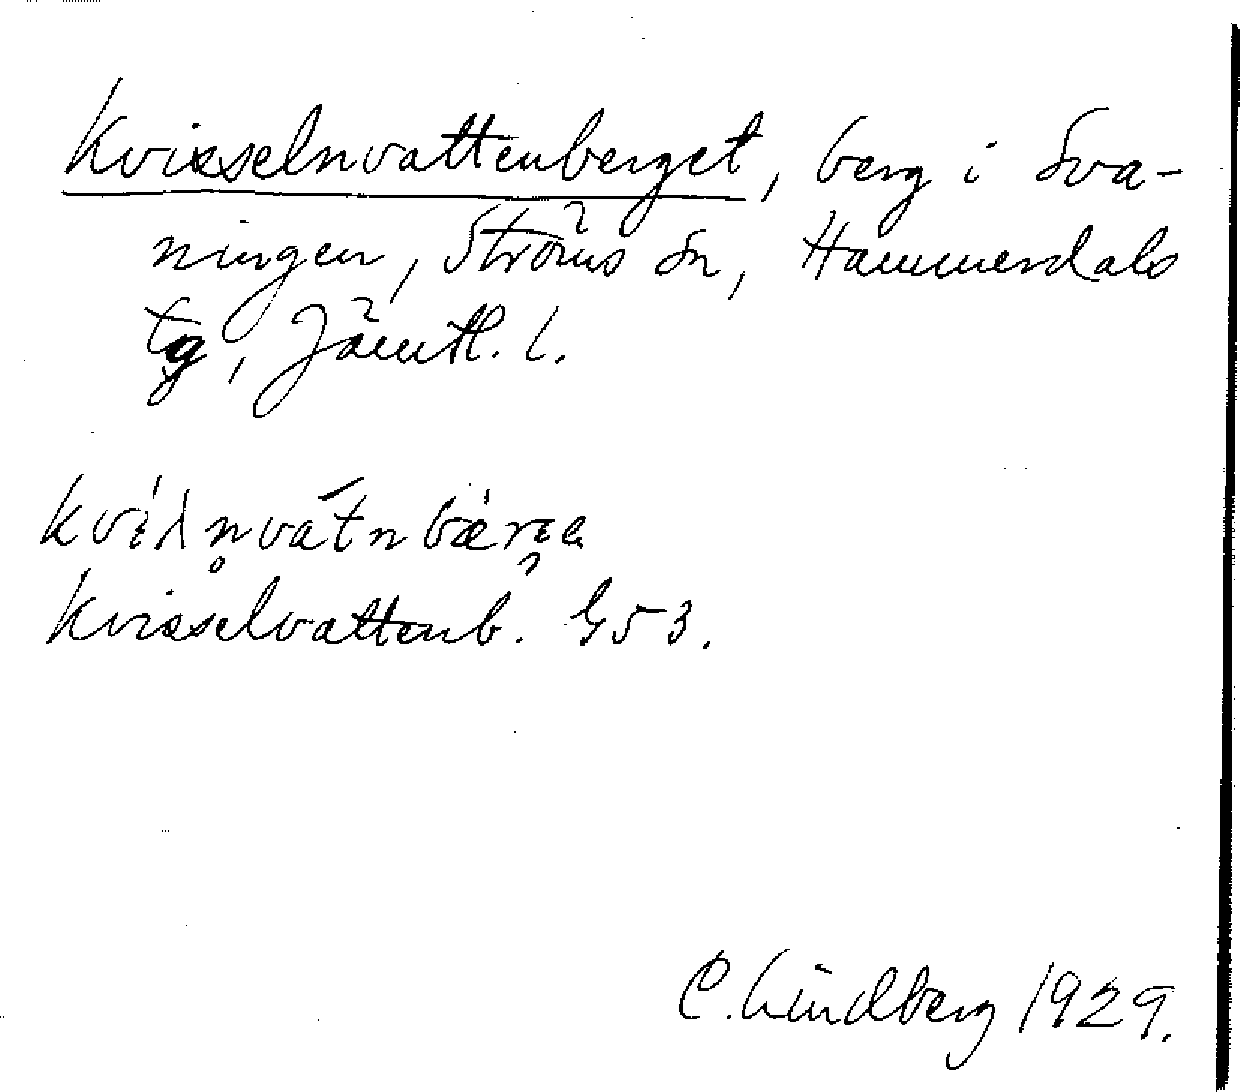 Kvisselnvattenberget, berg i Sva-
ningen, Ströms sn, Hammerdals
tg, Jämtl. l.
Kvisselvattenb. G 53.
C. Lindberg 1929.